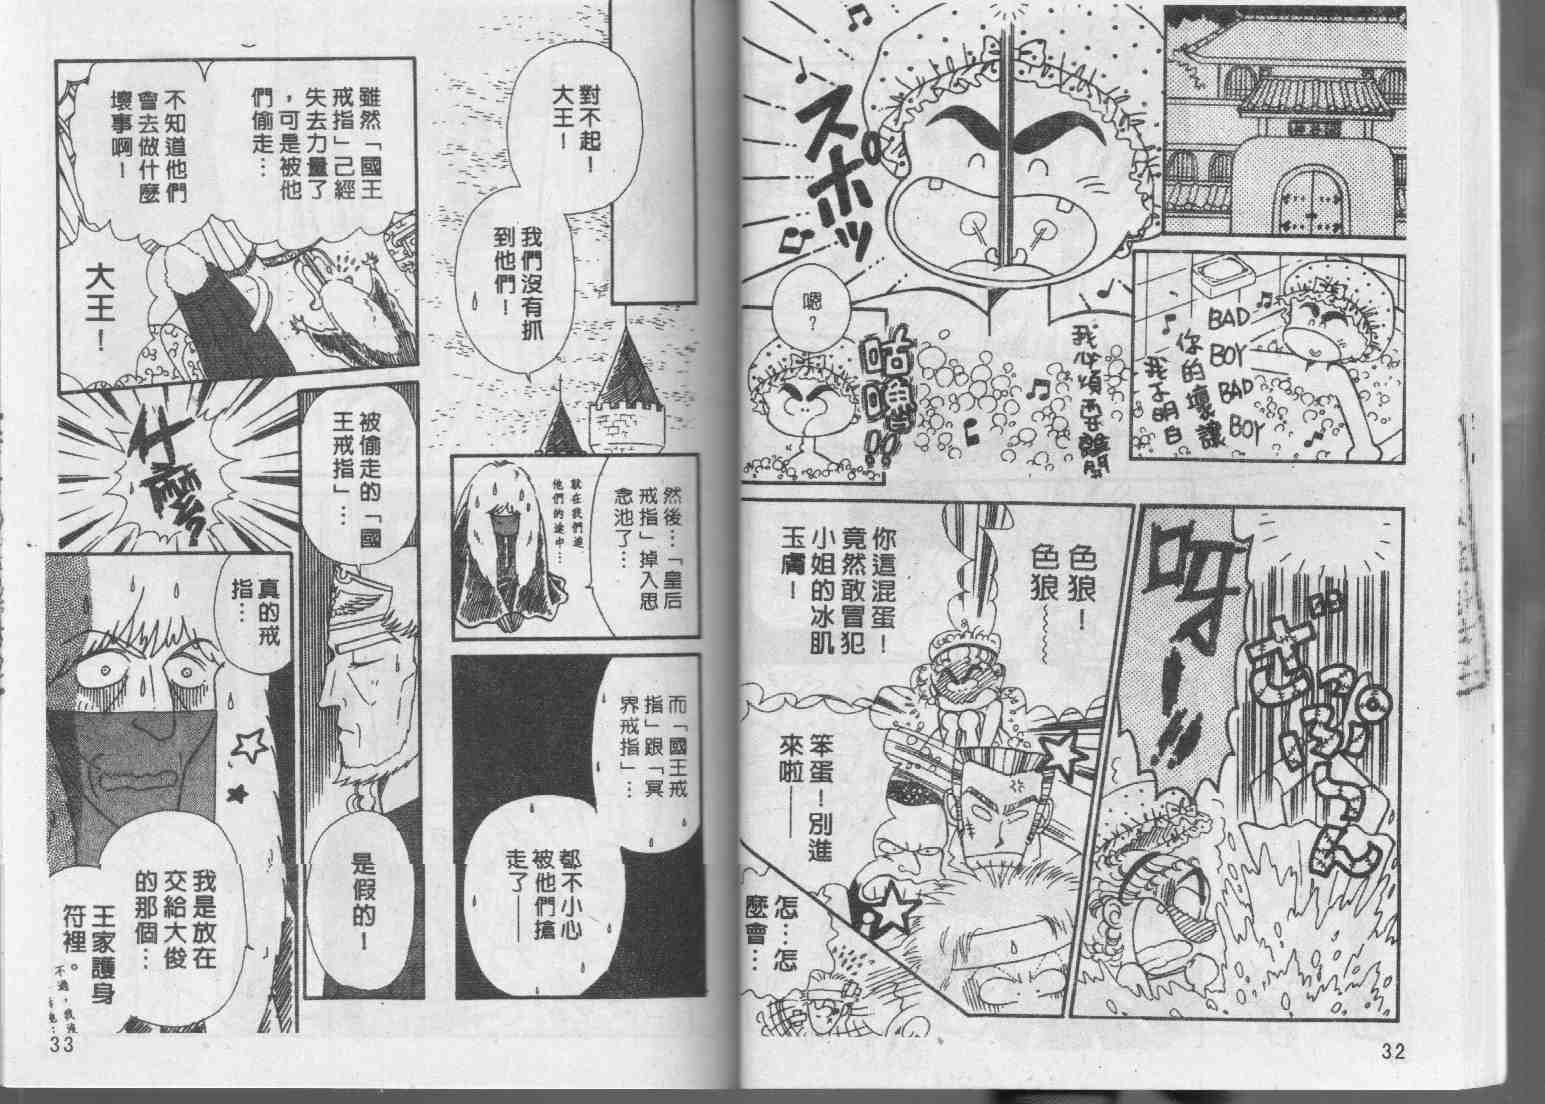 BAD
BOY
BAD
BOY
你的壞讓
我不明白
スポッ
我心煩要離開
嗯?
咕嚕!!
ざっぷーん
呀——!!
色狼!
色狼~
你這混蛋!
竟然敢冒犯
小姐的冰肌
玉膚!
笨蛋!別進
來啦——
怎…怎
麼會…
32
對不起!
大王!
我們沒有抓
到他們!
雖然「國王
戒指」已經
失去力量了
,可是被他
們偷走…
不知道他們
會去做什麼
壞事啊!
大王!
就在我們追
他們的途中…
然後…「皇后
戒指」掉入思
念池了…
被偷走的「國
王戒指」…
什麼?
而「國王戒
指」跟「冥
界戒指」…
都不小心
被他們搶
走了——
是假的!
真的戒
指…
我是放在
交給大俊
的那個…
王家護身
符裡。
不過,我沒
33